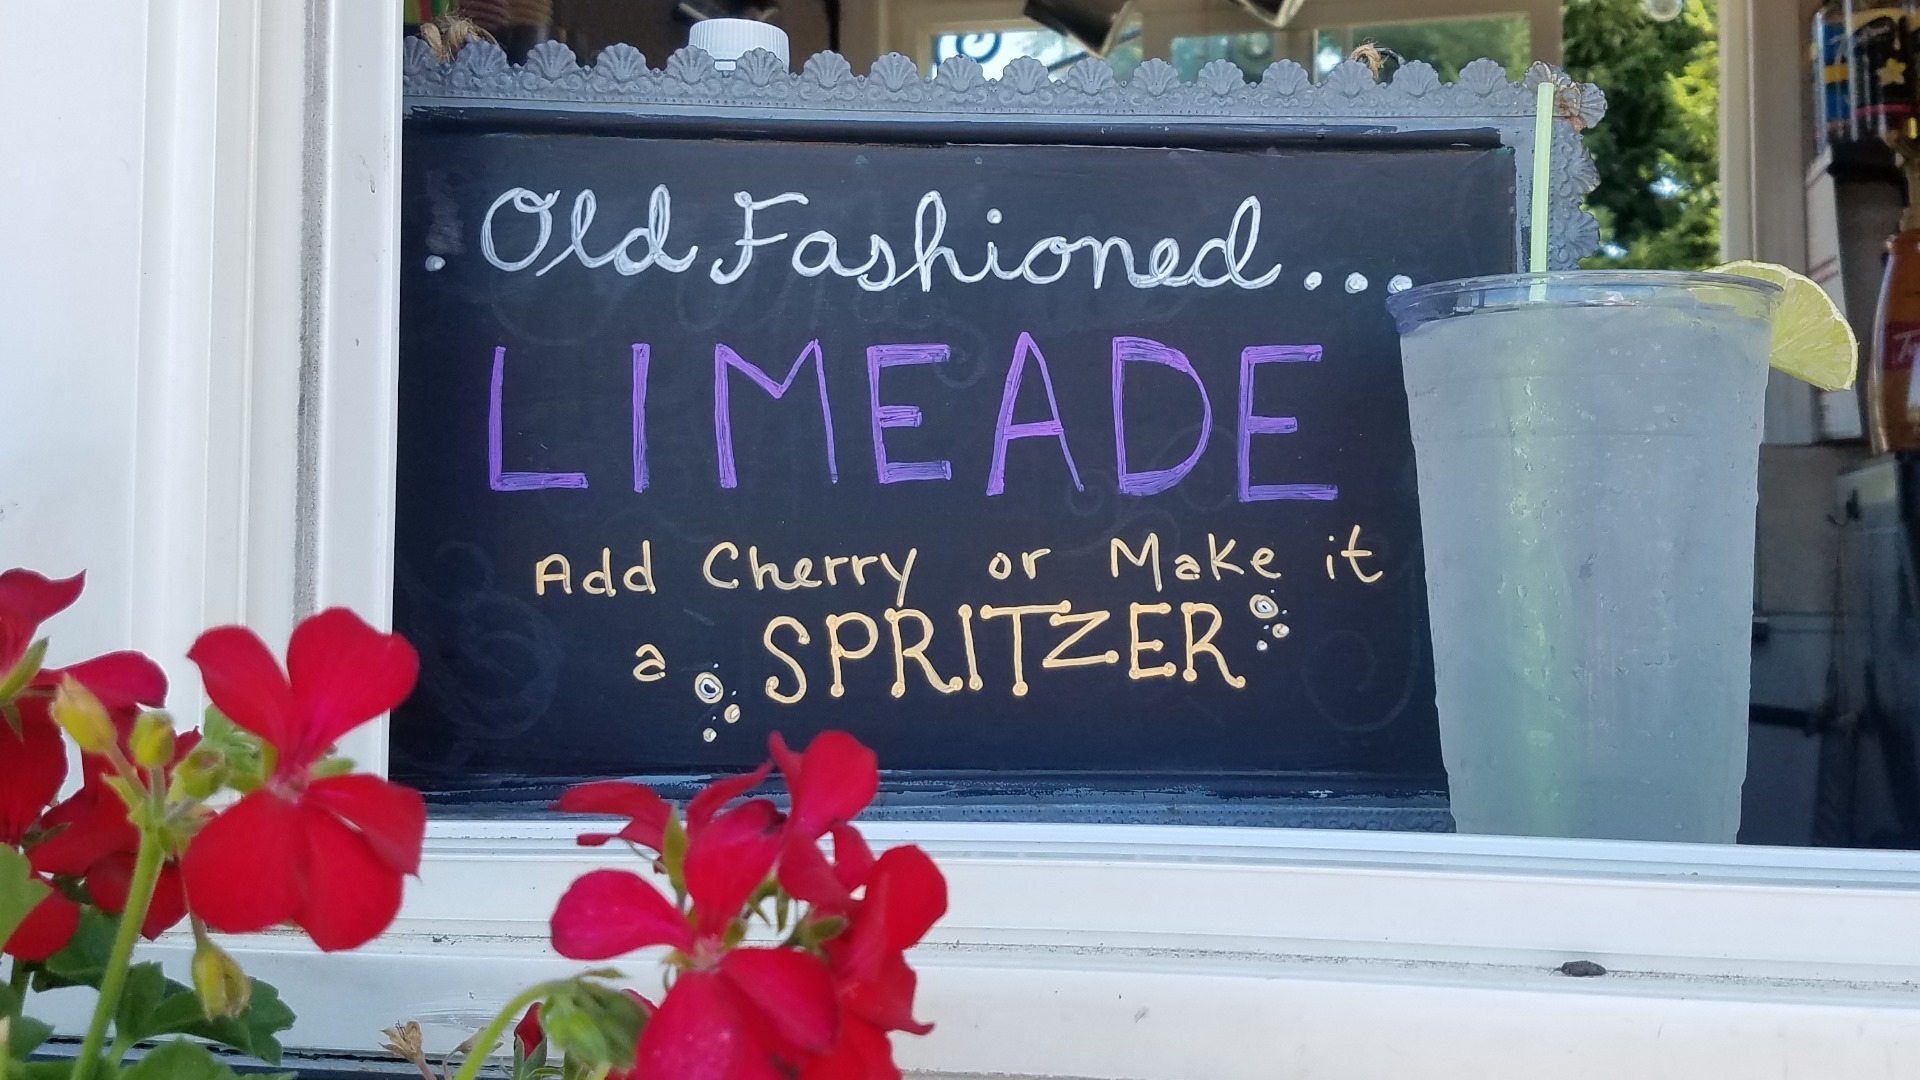 . Old Fashioned...
LIMEADE
Add Cherry or Make it
a SPRITZER